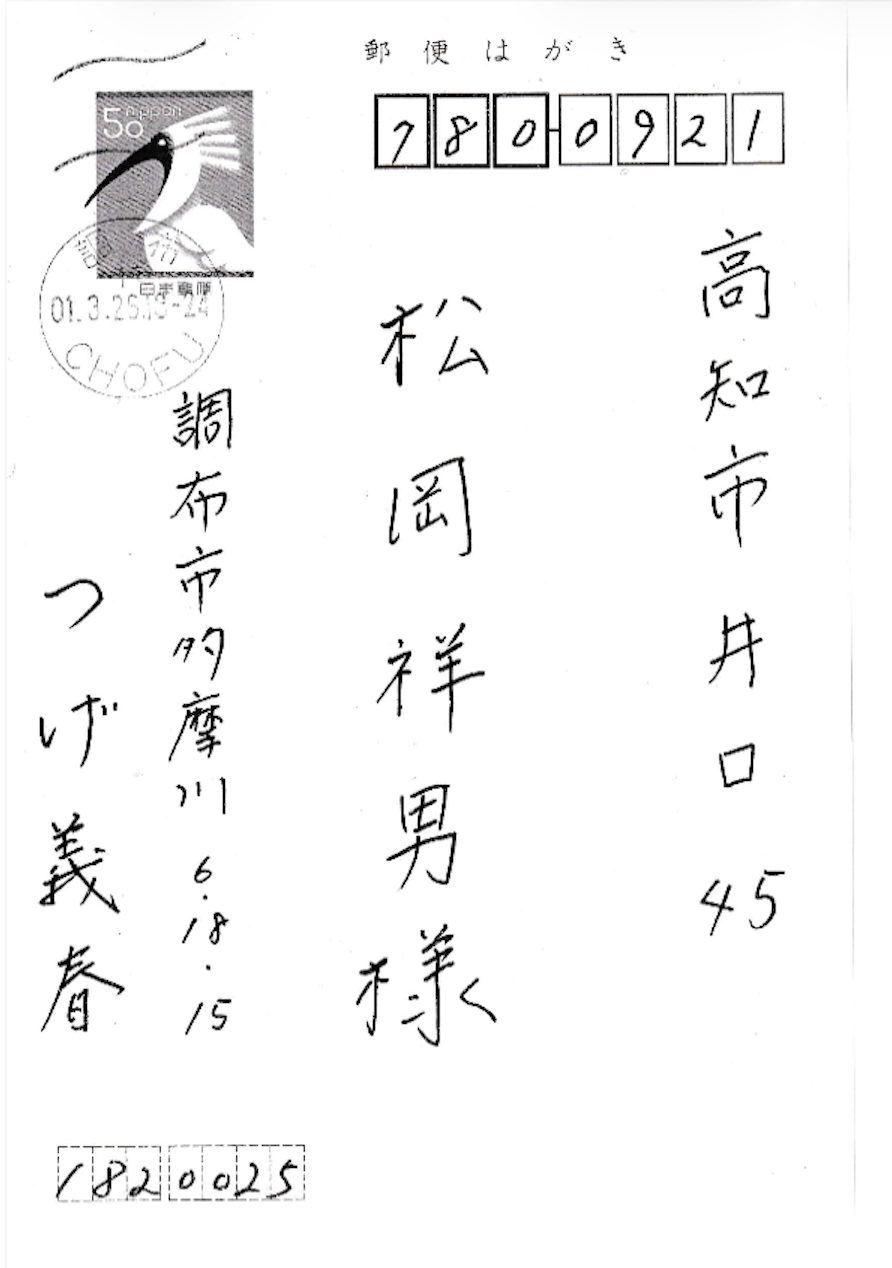 郵便はがき
50 nippon
日本郵便
調布
01.3.25.18-24
CHOFU
780-0921
高知市井口45
松岡祥男様
調布市多摩川6・18・15
つげ義春
1820025